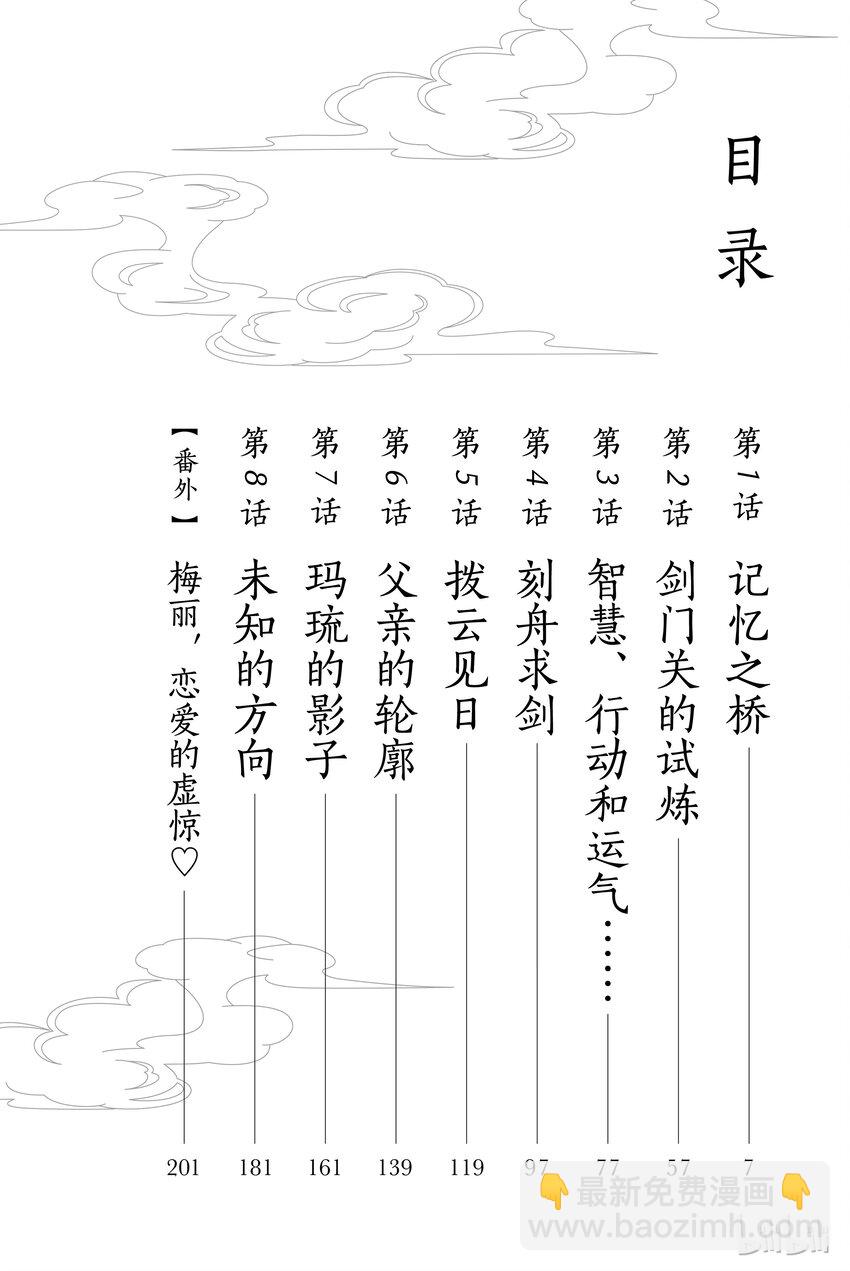 目录
第1话 记忆之桥 7
第2话 剑门关的试炼 57
第3话 智慧、行动和运气…… 77
第4话 刻舟求剑 97
第5话 拨云见日 119
第6话 父亲的轮廓 139
第7话 玛琉的影子 161
第8话 未知的方向 181
【番外】 梅丽，恋爱的虚惊♡ 201
👇最新免费漫画👇
www.baozimh.com